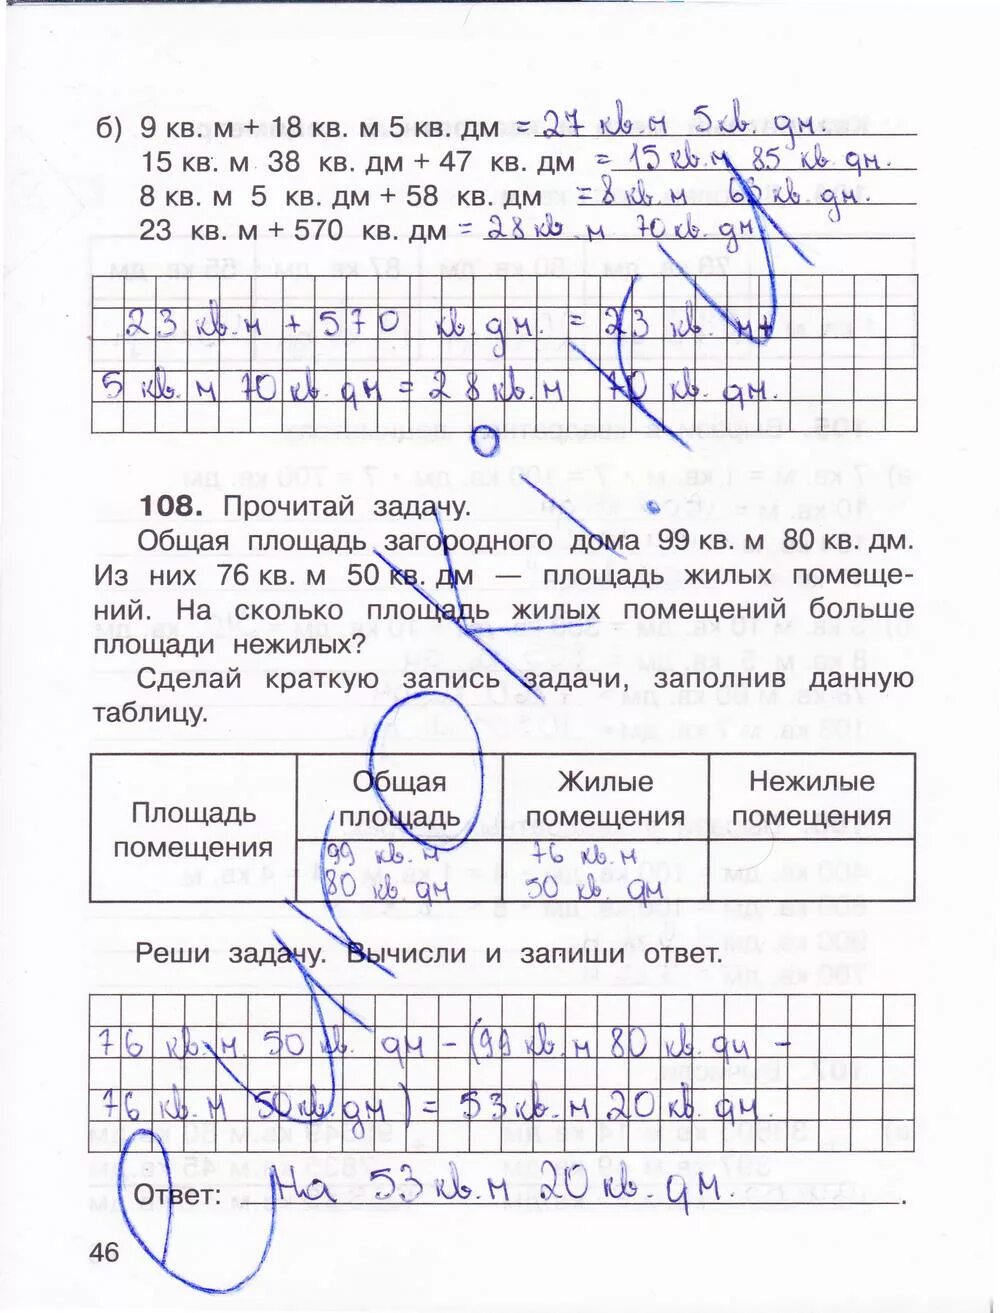 б) 9 кв. м + 18 кв. м 5 кв. дм = 27 кв. м 5 кв. дм
15 кв. м 38 кв. дм + 47 кв. дм = 15 кв. м 85 кв. дм.
8 кв. м 5 кв. дм + 58 кв. дм = 8 кв. м 63 кв. дм.
23 кв. м + 570 кв. дм = 28 кв. м 70 кв. дм
23 кв. м + 570 кв. дм. = 23 кв. м +
5 кв. м 70 кв. дм = 28 кв. м 70 кв. дм.
108. Прочитай задачу.
Общая площадь загородного дома 99 кв. м 80 кв. дм.
Из них 76 кв. м 50 кв. дм — площадь жилых помеще-
ний. На сколько площадь жилых помещений больше
площади нежилых?
Сделай краткую запись задачи, заполнив данную
таблицу.
Площадь помещения
Общая площадь
Жилые помещения
Нежилые помещения
99 кв. м 80 кв дм
76 кв. м 50 кв дм
Реши задачу. Вычисли и запиши ответ.
76 кв. м. 50 кв. дм – (99 кв. м 80 кв. дм –
76 кв. м 50 кв. дм) = 53 кв. м 20 кв. дм.
Ответ: На 53 кв. м 20 кв. дм.
46